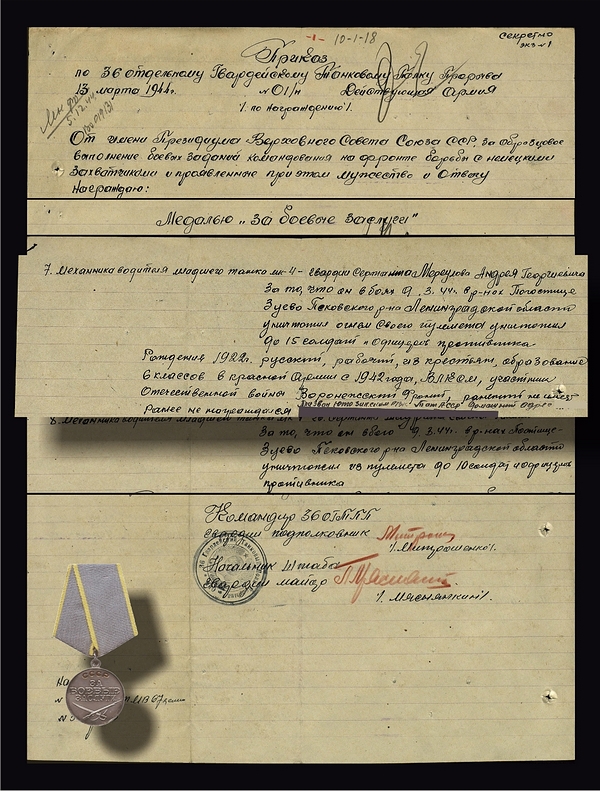 -1- 10-1-18
Секретно
экз №1
Приказ
по 36 отдельному Гвардейскому Танковому Полку Прорыва
13 марта 1944г. №01/н Действующая Армия
5.12.44
/. по награждению/.
От имени Президиума Верховного Совета Союза ССР, за образцовое
выполнение боевых заданий командования на фронте борьбы с немецкими
захватчиками и проявленные при этом мужество и отвагу
награждаю:
Медалью „За боевые заслуги"
7. Механика водителя младшего танка мк-4 - гвардии Сержанта Андрея Георгиевича
За то, что он в боях 9.3.44г. в р-нах Погостище
Зуево Псковского р-на Ленинградской области
уничтожил огнем своего пулемета уничтожил
до 15 солдат и офицеров противника
Рождения 1922г. русский, рабочий, из крестьян, образование
6 классов в красной Армии с 1942 года, ВЛКСМ, участник
Отечественной войны Воронежский фронт, ранений не имеет
Ранее не награждался
8. Механика водителя младшего танка мк-4
За то, что он в боях 9.3.44г. в р-нах Погостище-
Зуево Псковского р-на Ленинградской области
уничтожил из пулемета до 10 солдат и офицеров
противника
Командир 36 ОГТПП
гвардии подполковник
/. Митрошенко/.
Начальник Штаба
гвардии майор
/. Мяснянкин/.
СССР
ЗА
БОЕВЫЕ
ЗАСЛУГИ
На